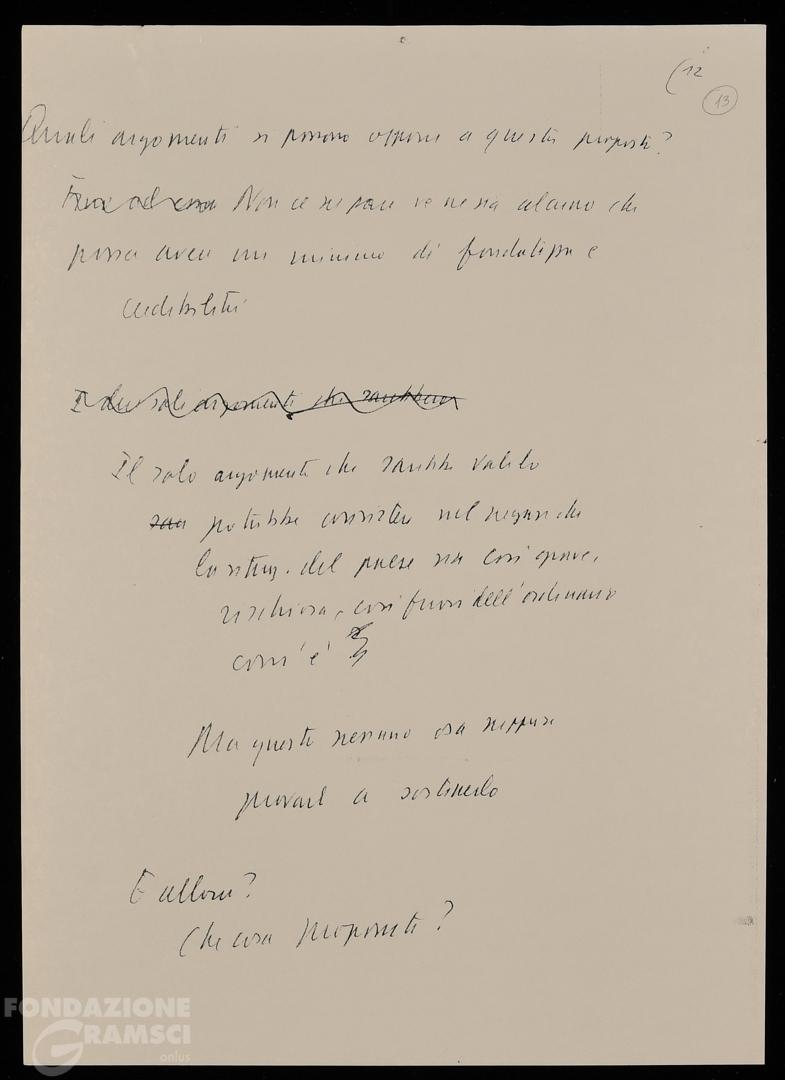 (12
13
Quali argomenti si possono opporre a questa proposta?
Fino ad ora Non ce ne pare ve ne sia alcuno che
possa avere un minimo di fondatezza e
credibilità
I due soli argomenti che sarebbero
Il solo argomento che sarebbe valido
potrebbe consistere nel negare che
la situaz. del paese sia così grave,
rischiosa, così fuori dell'ordinario
com'è
Ma questo nessuno osa neppure
provare a sostenerlo
E allora?
Che cosa proponete?
FONDAZIONE
GRAMSCI
onlus